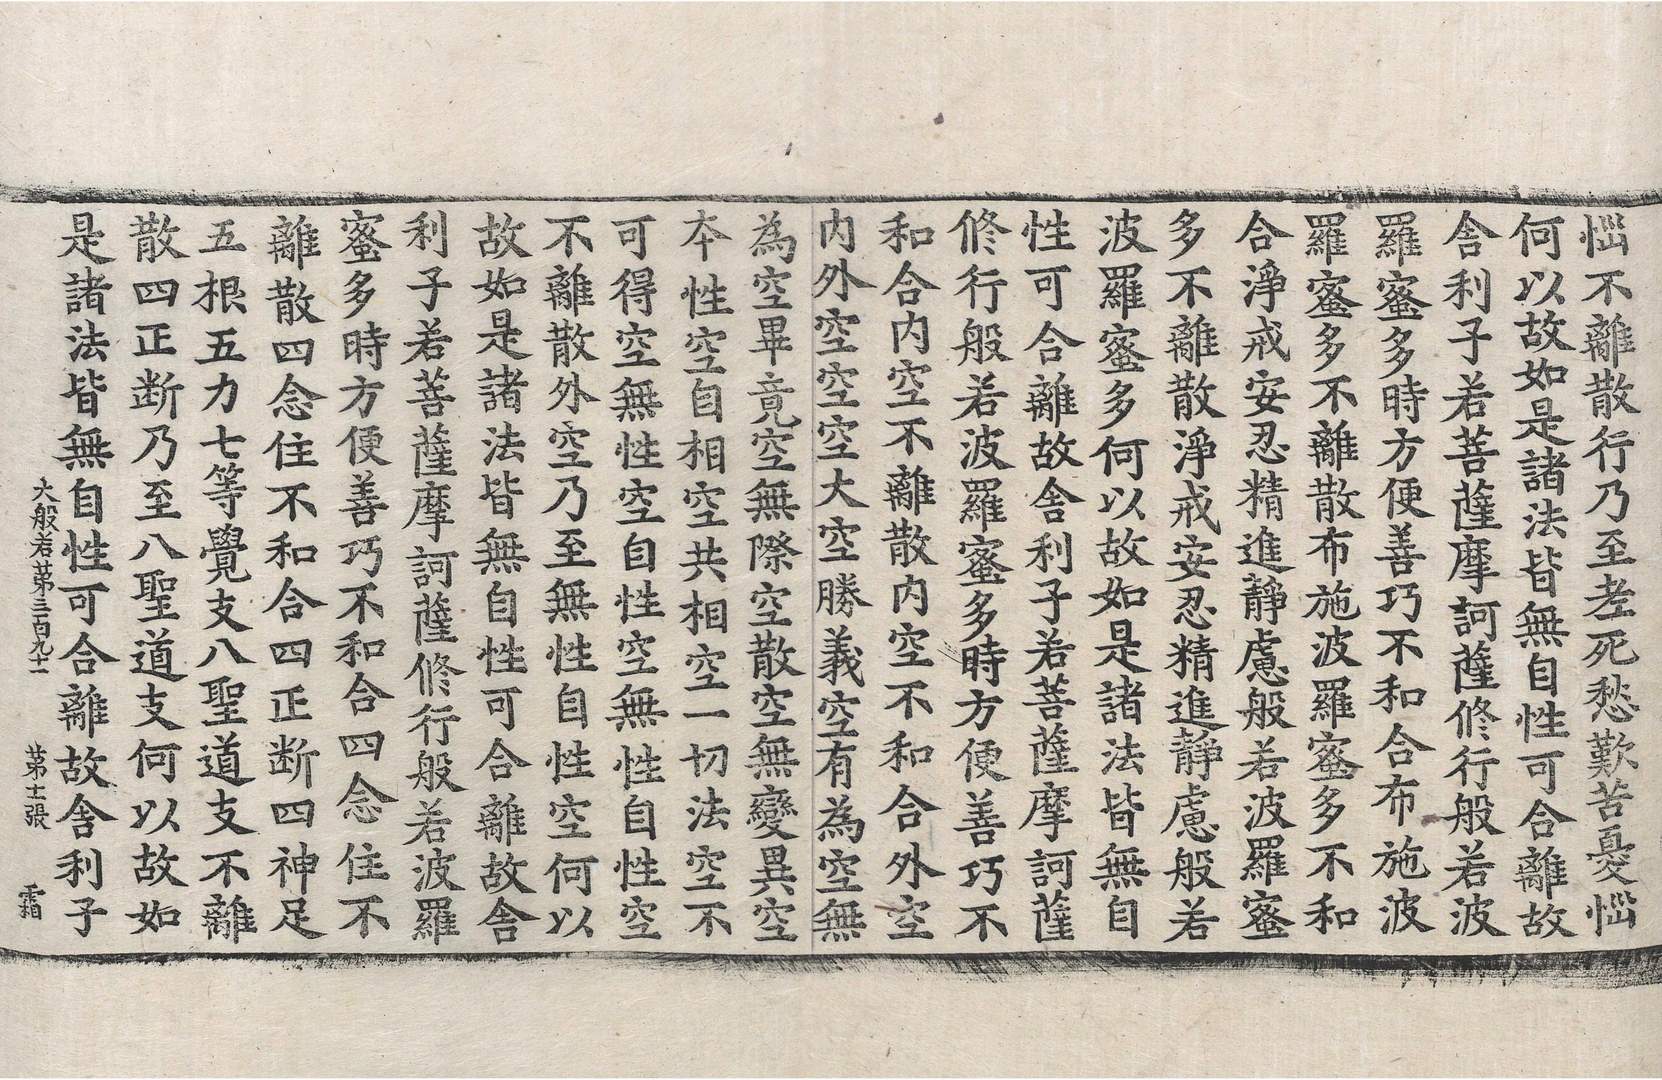 惱不離散行乃至老死愁歎苦憂惱
何以故如是諸法皆無自性可合離故
舍利子若菩薩摩訶薩修行般若波
羅蜜多時方便善巧不和合布施波
羅蜜多不離散布施波羅蜜多不和
合淨戒安忍精進靜慮般若波羅蜜
多不離散淨戒安忍精進靜慮般若
波羅蜜多何以故如是諸法皆無自
性可合離故舍利子若菩薩摩訶薩
修行般若波羅蜜多時方便善巧不
和合内空不離散内空不和合外空
内外空空空大空勝義空有為空無
為空畢竟空無際空散空無變異空
本性空自相空共相空一切法空不
可得空無性空自性空無性自性空
不離散外空乃至無性自性空何以
故如是諸法皆無自性可合離故舍
利子若菩薩摩訶薩修行般若波羅
蜜多時方便善巧不和合四念住不
離散四念住不和合四正断四神足
五根五力七等覺支八聖道支不離
散四正断乃至八聖道支何以故如
是諸法皆無自性可合離故舍利子
大般若苐三百九十一 苐十一張 霜